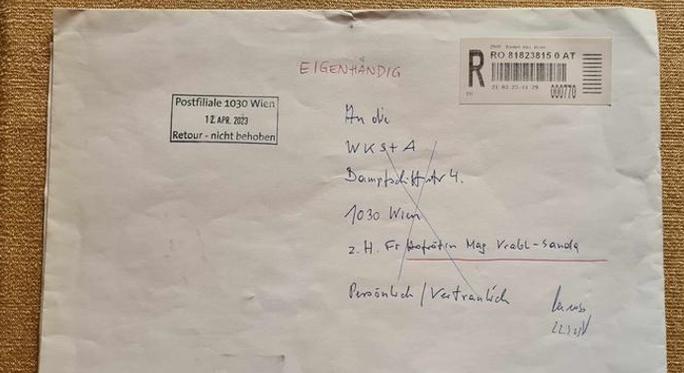 EIGENHÄNDIG
R
RO 81823815 0 AT
000770
Postfiliale 1030 Wien
12. APR. 2023
Retour - nicht behoben
An die
WKStA
Dampfschiffstr 4.
1030 Wien
z. H. Fr Hofrätin Mag Vrabl-Sanda
Persönlich / Vertraulich